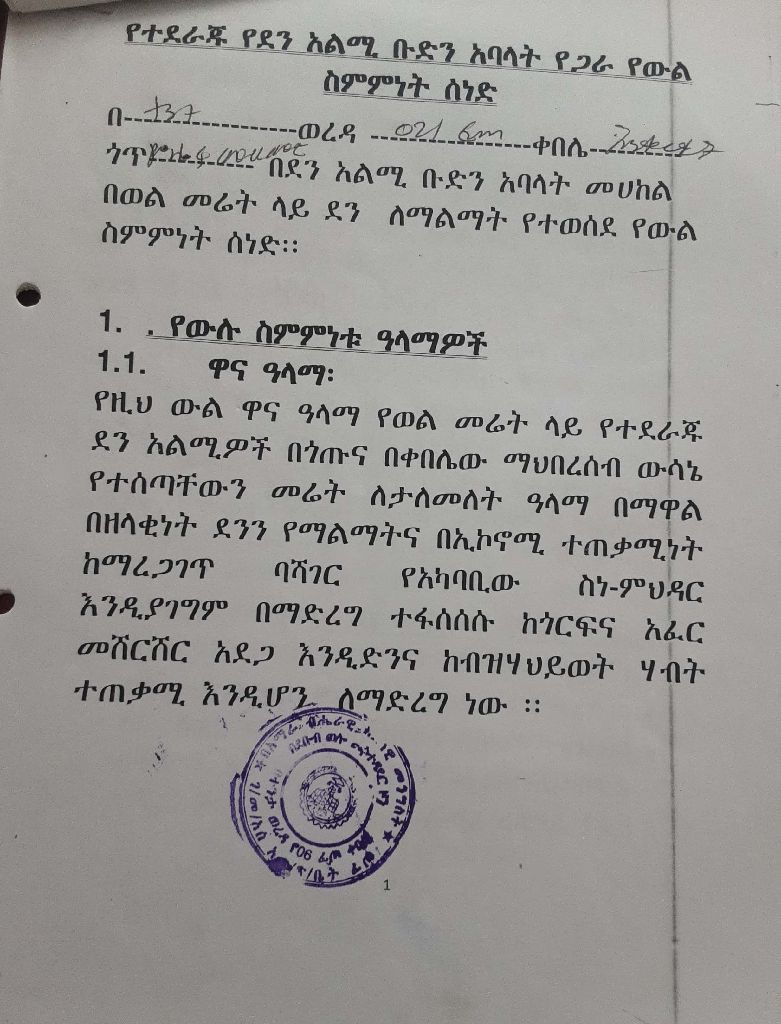 የተደራጁ የደን አልሚ ቡድን አባላት የጋራ የውል
ስምምነት ሰነድ
በ---------------------ወረዳ ---------------------ቀበሌ---------------
ጎጥ-------------- በደን አልሚ ቡድን አባላት መሀከል
በወል መሬት ላይ ደን ለማልማት የተወሰደ የውል
ስምምነት ሰነድ፡፡
1. . የውሉ ስምምነቱ ዓላማዎች
1.1. ዋና ዓላማ፡
የዚህ ውል ዋና ዓላማ የወል መሬት ላይ የተደራጁ
ደን አልሚዎች በጎጡና በቀበሌው ማህበረሰብ ውሳኔ
የተሰጣቸውን መሬት ለታለመለት ዓላማ በማዋል
በዘላቂነት ደንን የማልማትና በኢኮኖሚ ተጠቃሚነት
ከማረጋገጥ ባሻገር የአካባቢው ስነ-ምህዳር
እንዲያገግም በማድረግ ተፋሰሰሱ ከጎርፍና አፈር
መሸርሸር አደጋ እንዲድንና ከብዝሃህይወት ሃብት
ተጠቃሚ እንዲሆን ለማድረግ ነው ፡፡
በደቡብ ወሎ
ወረዳ የ06
1